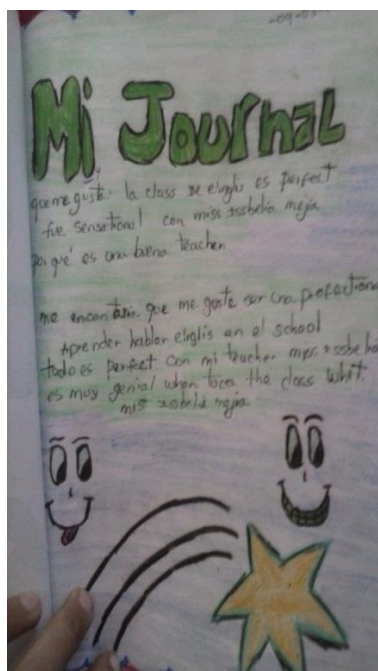 -09-03-
Mi Journal
que me gusto: la class de elnglis es perfect
fue sensational con miss issbelia mejia
Por qué es una buena teacher
me encantaria que me guste ser una
Aprender hablar elnglis en el school
todo es perfect con mi teacher miss
es muy genial when toca the class whit.
mis mejia